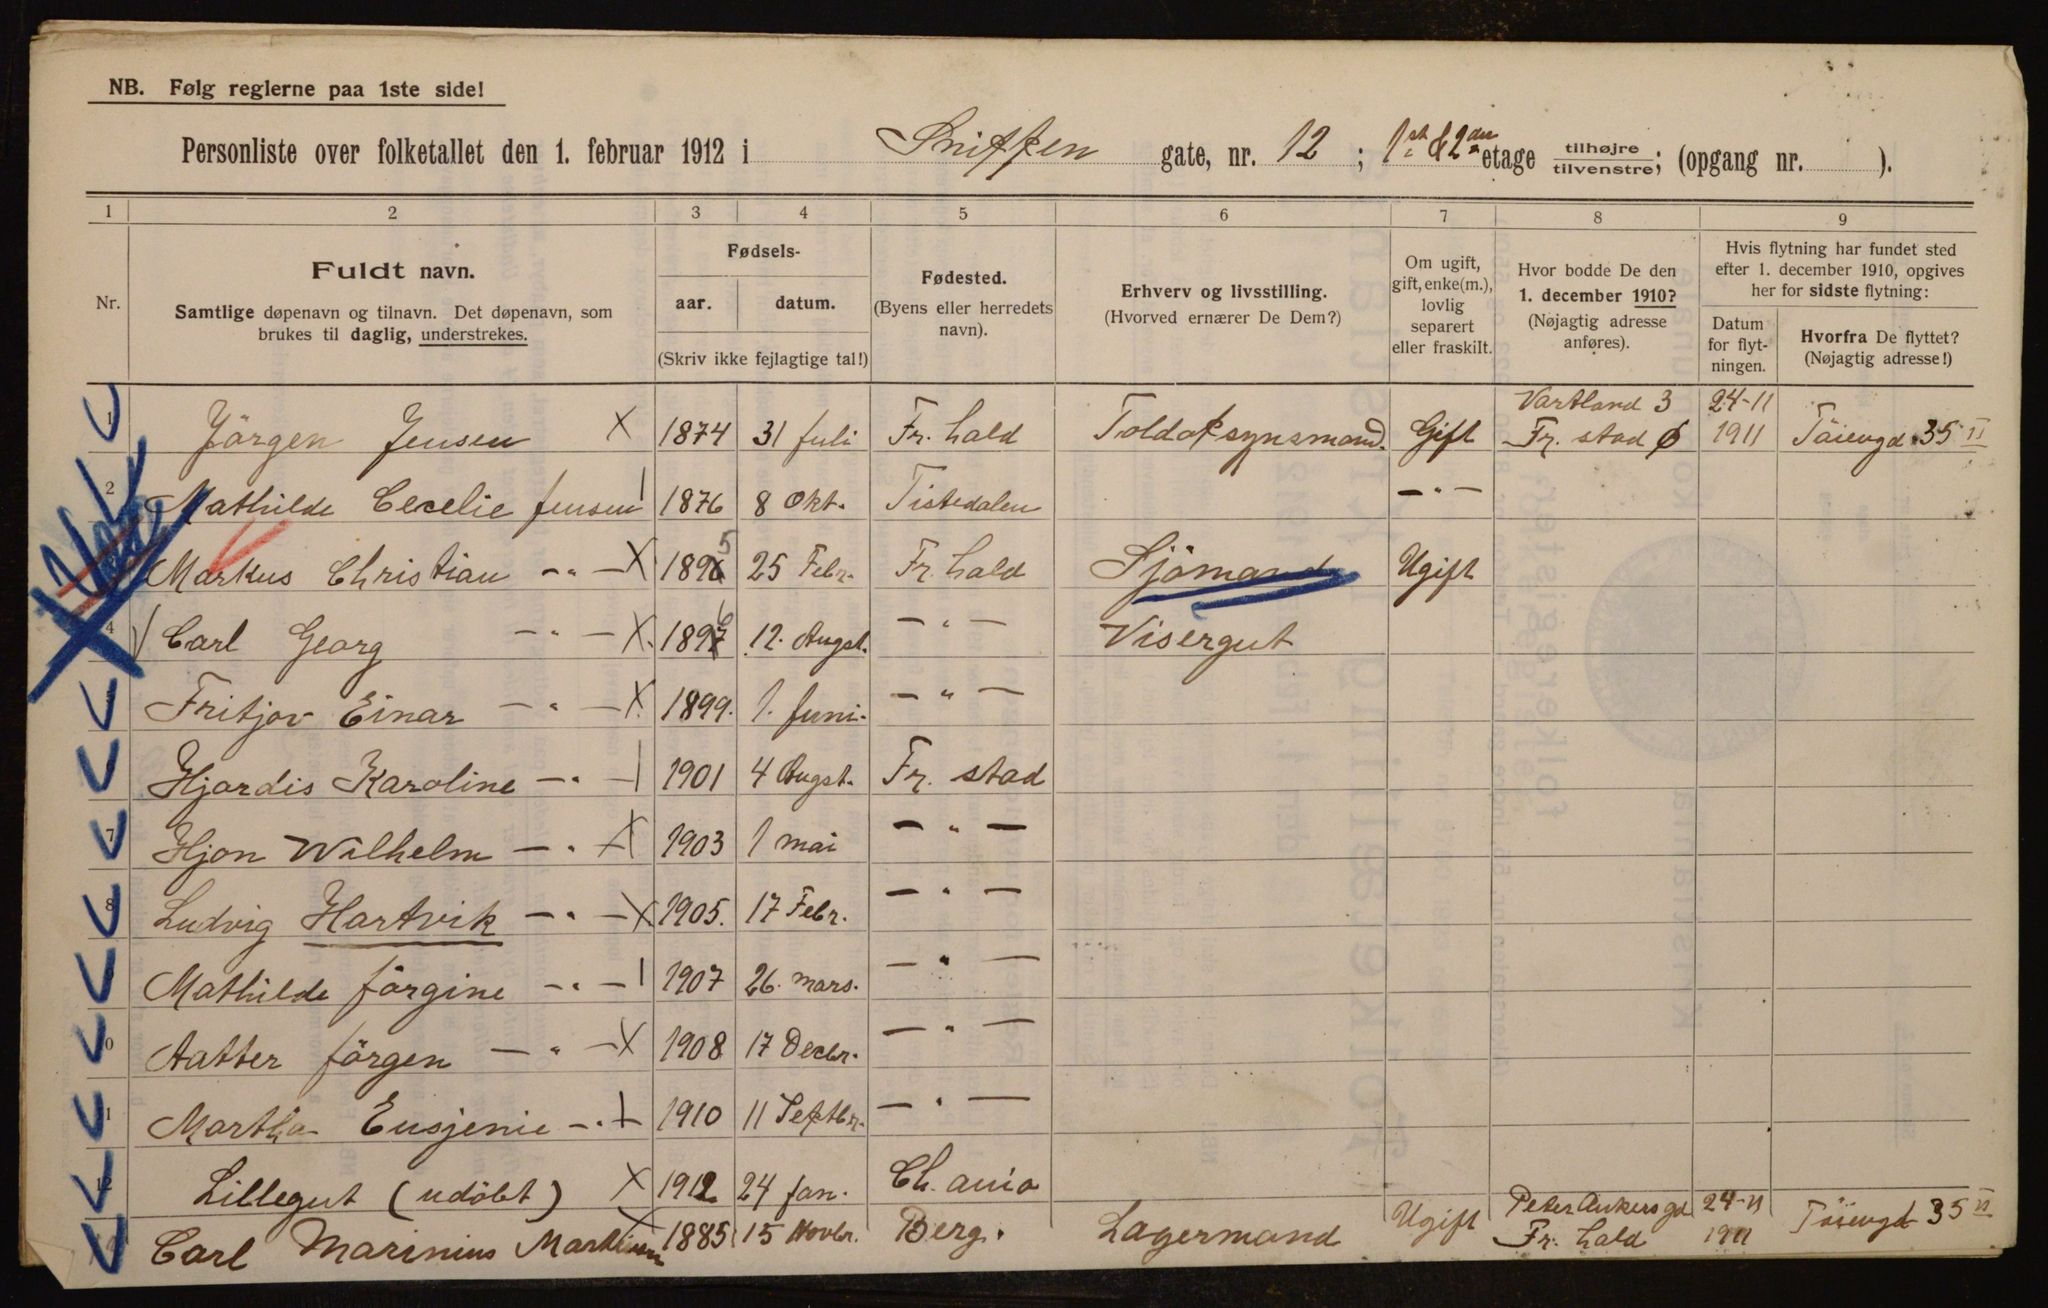 NB. Følg reglerne paa 1ste side!
Personliste over folketallet den 1. februar 1912 i Snippen gate, nr. 12 ; 1st & 2den etage tilhøjre tilvenstre; (opgang nr. ).
1 2 3 4 5 6 7 8 9
Nr.
Fuldt navn.
Samtlige døpenavn og tilnavn. Det døpenavn, som
brukes til daglig, understrekes.
Fødsels-
aar. datum.
(Skriv ikke fejlagtige tal!)
Fødested.
(Byens eller herredets
navn).
Erhverv og livsstilling.
(Hvorved ernærer De Dem?)
Om ugift,
gift, enke(m.),
lovlig
separert
eller fraskilt.
Hvor bodde De den
1. december 1910?
(Nøjagtig adresse
anføres).
Hvis flytning har fundet sted
efter 1. december 1910, opgives
her for sidste flytning:
Datum
for flyt-
ningen.
Hvorfra De flyttet?
(Nøjagtig adresse!)
Vartland 3 24-11
1 Jörgen Jensen X 1874 31 juli Fr. hald Toldopsynsmand. Gift Fr. stad 1911 Töiengd. 35 II
2 Mathilde Cecelie Jensen 1876 8 Okt. Tistedalen — " —
Markus Christian — " — X 1895 25 Febr. Fr. hald Sjömand Ugift
4 Carl Georg — " — X. 1896 12. Augst. — " — Visergut
Fritjov Einar — " — X. 1899. 1. Juni. — " —
Hjordis Karoline — " — 1901 4 Augst. Fr. stad
7 Hjon Wilhelm — " — X 1903 1 mai — " —
8 Ludvig Hartvik — " — X 1905. 17 Febr. — " —
Mathilde Jörgine — " — 1907 26. mars. — " —
0 Aatter Jörgen — " — X 1908 17 Decbr. — " —
1 Martha Eusjenie — " — 1910 11 Septbr. — " —
12 Lillegut (udöbt) X 1912 24 Jan. Ch. ania
Peter Ankers gd 24-11
Carl Marinius Martinsen 1885 15 Novbr. Berg. Lagermand Ugift Fr. hald 1911 Töiengd 35 II